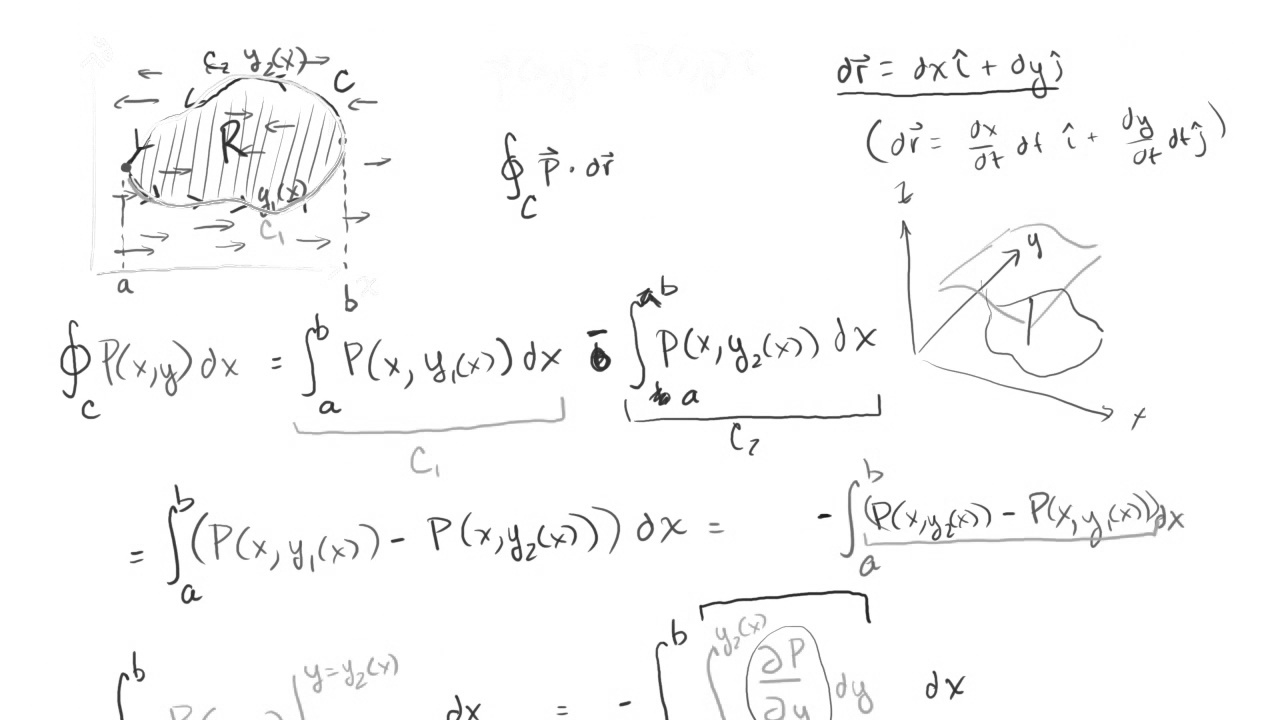 C₂ y₂(x)
C
R
y₁(x)
C₁
a
b
x
∮_C P⃗ · dr⃗
dr⃗ = dx î + dy ĵ
(dr⃗ = dx/dt dt î + dy/dt dt ĵ)
z
y
x
∮_C P(x,y) dx = ∫_a^b P(x, y₁(x)) dx - ∫_a^b P(x, y₂(x)) dx
C₁
C₂
= ∫_a^b (P(x, y₁(x)) - P(x, y₂(x))) dx = - ∫_a^b (P(x, y₂(x)) - P(x, y₁(x))) dx
∫^b y=y₂(x) dx = - ∫^b ∫^{y₂(x)} ∂P/∂y dy dx